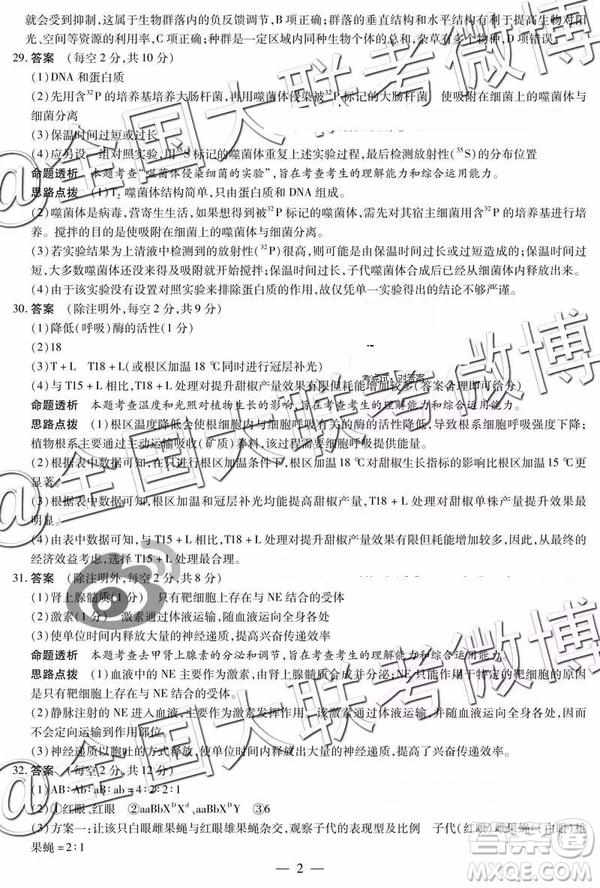 就会受到抑制,这属于生物群落内的负反馈调节,B项正确;群落的垂直结构与水平结构有利于提高生物对阳
光、空间等资源的利用率,C项正确;种群是一定区域内同种生物个体的总和,杂草有多个物种,D项错误。
29. 答案 (每空2分,共10分)
(1)DNA和蛋白质
(2)先用含³²P的培养基培养大肠杆菌,再用噬菌体侵染³²P标记的大肠杆菌 使吸附在细菌上的噬菌体与
细菌分离
(3)保温时间过短或过长
(4)应另设一组对照实验,用³⁵S标记的噬菌体重复上述实验过程,最后检测放射性(³⁵S)的分布位置
命题透析 本题考查“噬菌体侵染细菌的实验”,旨在考查考生的理解能力和综合运用能力。
思路点拨 (1)T₂噬菌体结构简单,只由蛋白质和DNA组成。
(2)噬菌体是病毒,营寄生生活,若对噬菌体进行³²P标记,需先对其宿主细菌用含³²P的培养基进行培
养。搅拌的目的是使吸附在细菌上的噬菌体与细菌分离。
(3)若实验结果为上清液中检测到的放射性(³²P)很高,则可能是由于保温时间过长或过短造成的;保温时间过
短,大多数噬菌体还没有来得及吸附就开始搅拌;保温时间过长,子代噬菌体会从细菌体内释放出来。
(4)由于该实验没有设置实验来排除蛋白质的作用,故该实验的结论不够严谨。
30. 答案 (除注明外,每空2分,共9分)
(1)降低(呼吸)酶的活性(1分)
(2)18
(3)T+L T18+L(或根区加温18 ℃同时进行冠层补光)
(4)与T15+L相比,T18+L处理对提升甜椒产量效果不明显且耗能较多(答案合理即可)
命题透析 本题考查温度和光照对植物生长的影响,旨在考查考生的理解能力和综合运用能力。
思路点拨 (1)根区温度降低会使根细胞中与细胞呼吸有关的酶的活性降低,导致根系细胞呼吸强度下降;
植物根系主要通过主动运输吸收(矿质)养料,该过程需要细胞呼吸提供能量。
(2)根据表中数据可知,只进行根区加温条件下,根区加温18 ℃对甜椒生长指标的影响比根区加温15 ℃更
显著。
(3)根据表中数据可知,根区加温和冠层补光均能提高甜椒产量,T18+L处理对甜椒单株产量提升效果最
明显。
(4)由表中数据可知,与T15+L相比,T18+L处理对提升甜椒产量效果不明显,但耗能较多,从最终的
经济效益考虑,选择T15+L处理最合理。
31. 答案 (除注明外,每空2分,共8分)
(1)肾上腺髓质(1分) 只有靶细胞上存在与NE结合的受体
(2)激素(1分) 激素通过体液运输,随血液运至全身各处
(3)使单位时间内释放大量的神经递质,提高兴奋传递效率
命题透析 本题考查去甲肾上腺素的分泌和调节,旨在考查考生的理解能力和综合运用能力。
思路点拨 (1)血液中的NE主要由肾上腺髓质合成并分泌;NE只能作用于特定的靶细胞的原因是
只有靶细胞上存在与NE结合的受体。
(2)静脉注射的NE进入血液,主要作为激素发挥作用;激素通过体液运输,随血液运至全身各处,因而不
会定向运输到作用部位。
(3)神经递质以胞吐的方式释放,使单位时间内释放大量的神经递质,提高兴奋传递效率。
32. 答案 (每空2分,共12分)
(1)AB∶Ab∶aB∶ab=4∶2∶2∶1
(2)①红眼、红眼 ②aaBbXᴰXᵈ、aaBbXᴰY ③6
(3)方案一:让该只白眼雌果蝇与红眼雄果蝇杂交,观察子代的表现型及比例 子代(红眼)雌果蝇∶(白眼)雄
果蝇=2∶1
— 2 —
@全国大联考微博
@全国大联考微博